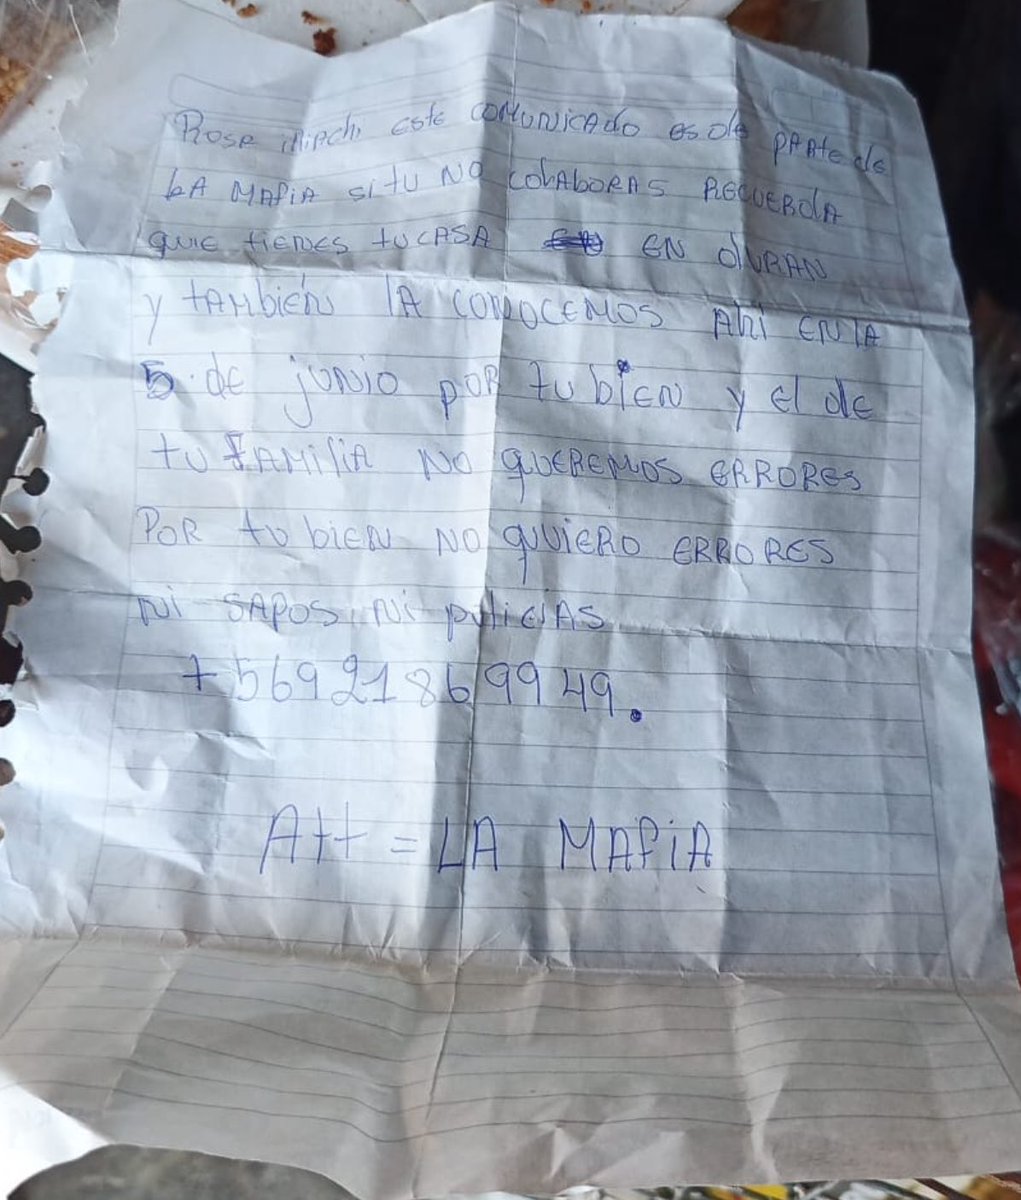 Rosa este comunicado es de parte de
LA MAfiA si tu NO colABORAS RECUERDA
que tienes tu CASA EN DURAN
y tAMbién lA CONOCEMOS Ahi EN lA
5 de junio pOR tu bien y el de
tu FAMiliA NO QUEREMOS ERRORES
POR tu bien NO quiERO ERRORES
Ni SAPOS, Ni policiAS
+56921869949.
Att = LA MAfiA